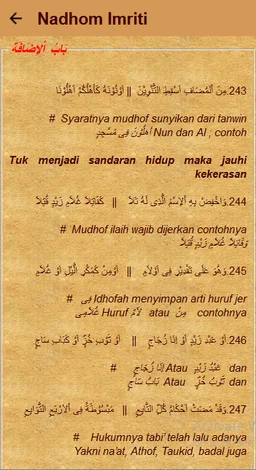 Nadhom Imriti
بَابُ اْلإِضَافَةِ
243.مِنَ الْمُضَافِ أَسْقِطِ التَّنْوِيْنَ || أَوْنُوْنَهُ كَأَهْلُكُمْ أَهْلُوْنَا
# Syaratnya mudhof sunyikan dari tanwin
Nun dan Al ; contoh أَهْلُوْنَ فِى مَسْجِدٍ
Tuk menjadi sandaran hidup maka jauhi
kekerasan
244.وَاخْفِضْ بِهِ اْلاِسْمَ الَّذِى لَهُ تَلاَ || كَقَاتِلاَ غُلاَمِ زَيْدٍ قُتِلاَ
# Mudhof ilaih wajib dijerkan contohnya
وَقَاتِلاَ غُلاَمِ زَيْدٍ قُتِلاَ
245.وَهْوَ عَلَى تَقْدِيْرِ فِى أَوْلاَمِ || أَوْمِنْ كَمَكْرِ الَّيْلِ أَوْ غُلاَمِ
# Idhofah menyimpan arti huruf jer فِى
Huruf لاَمْ atau مِنْ contohnya غُلاَمِى
246.أَوْ عَبْدِ زَيْدٍ أَوْ إِنَا زُجَاجِ || أَوْ ثَوْبِ خُزٍّ أَوْ كَبَابِ سَاجِ
dan عَبْدُ زَيْدٍ Atau إِنَا زُجَاجٍ #
dan ثَوْبُ خُزٍّ Atau بَابُ سَاجٍ
247.وَقَدْ مَضَتْ أَحْكَامُ كُلِّ التَّابِعِ || مَبْسُوْطَةً فِى اْلأَرْبَعِ التَّوَابِعِ
# Hukumnya tabi' telah lalu adanya
Yakni na'at, Athof, Taukid, badal juga